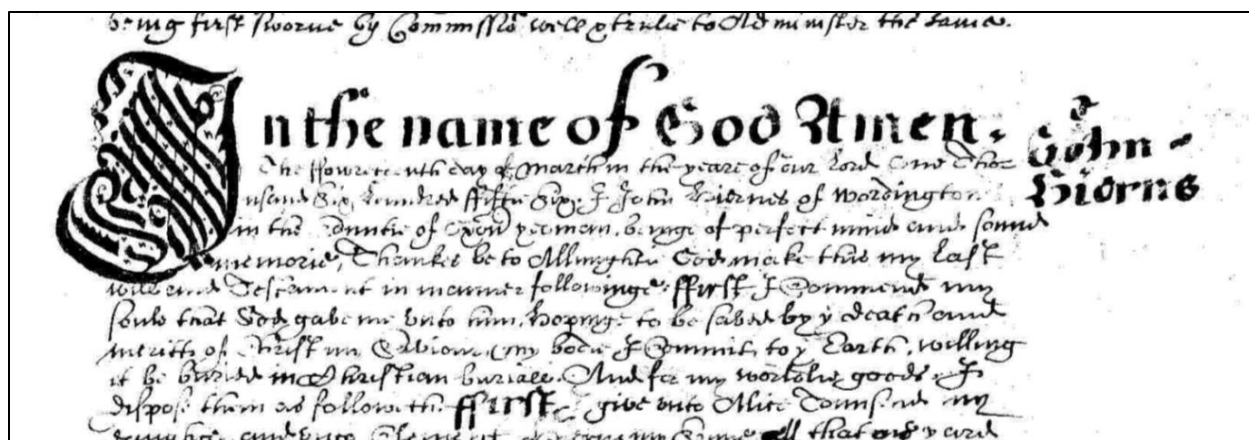 being first sworne by Commissio well & trulie to Administer the same.
In the name of God Amen.
John
Hiorns
The ffowreteenth day of March in the yeare of our Lord One Thou
usand Six hundred ffiftie Six. I John Hiornes of Wordington
in the Countie of Oxon yeoman, beinge of perfect minde and sound
memorie, Thankes be to Allmightie God make this my Last
will and Testament in manner followinge, ffirst I Commend my
soule that God gave me unto him, hopinge to be saved by ye death and
meritts of Christ my Saviour, my bodie I Commit to ye Earth, willing
it be buried in Christian buriall. And for my worldlie goods I
dispose them as followeth ffirst I give unto Alice Townsend my
daughter and unto Clement my Sonne all that yard